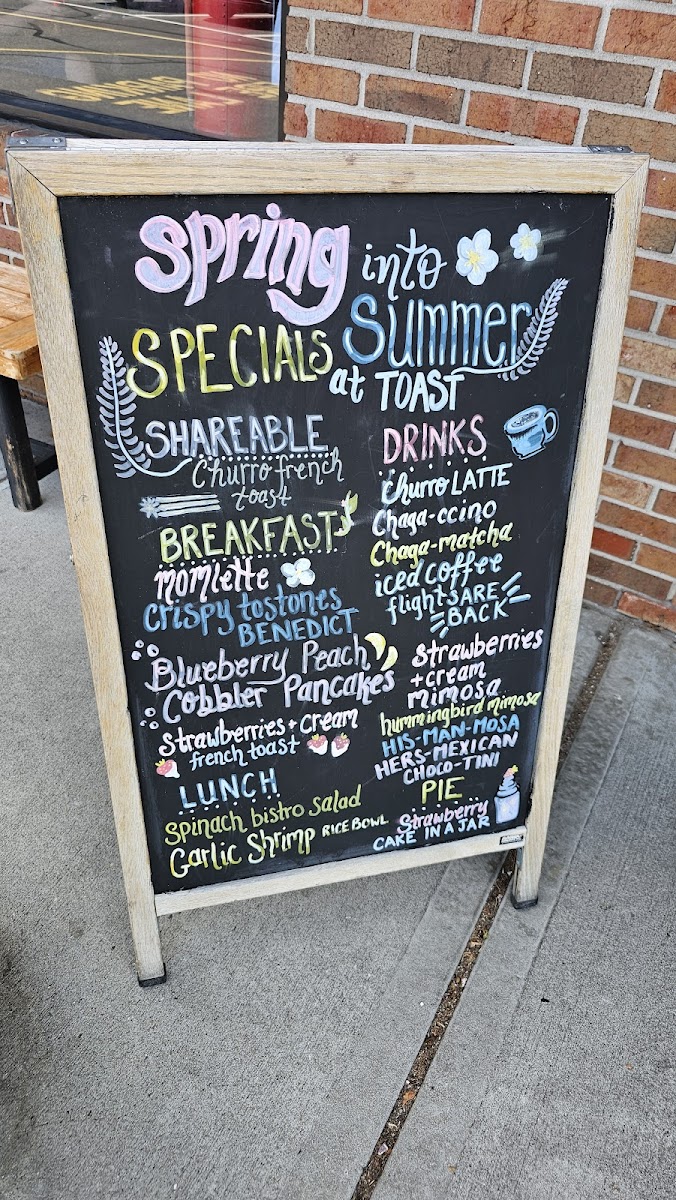 Spring into
Summer
SPECIALS
at TOAST
SHAREABLE
Churro french
toast
BREAKFAST
momlette
crispy tostones
BENEDICT
Blueberry Peach
Cobbler Pancakes
strawberries + cream
french toast
LUNCH
Spinach bistro salad
Garlic Shrimp RICE BOWL
DRINKS
Churro LATTE
Chaga-ccino
Chaga-matcha
iced coffee
flights ARE
BACK
strawberries
+ cream
mimosa
hummingbird mimosa
HIS-MAN-MOSA
HERS-MEXICAN
CHOCO-TINI
PIE
Strawberry
CAKE IN A JAR